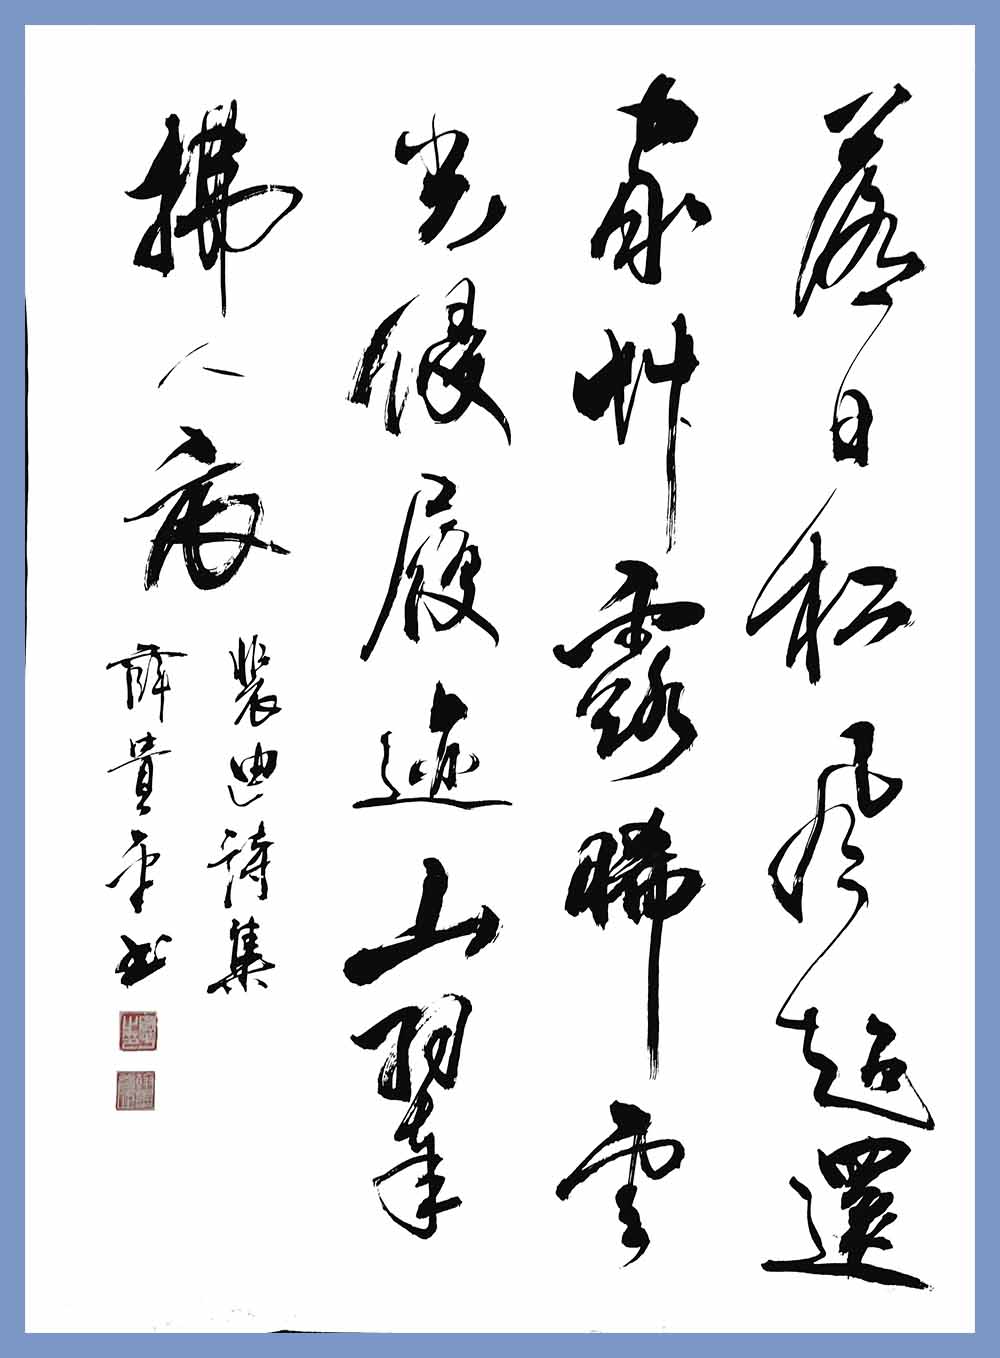 落日松风起還
家艸露晞雲
光侵履迹山翠
拂人衣
裴迪诗集
薛貴平书